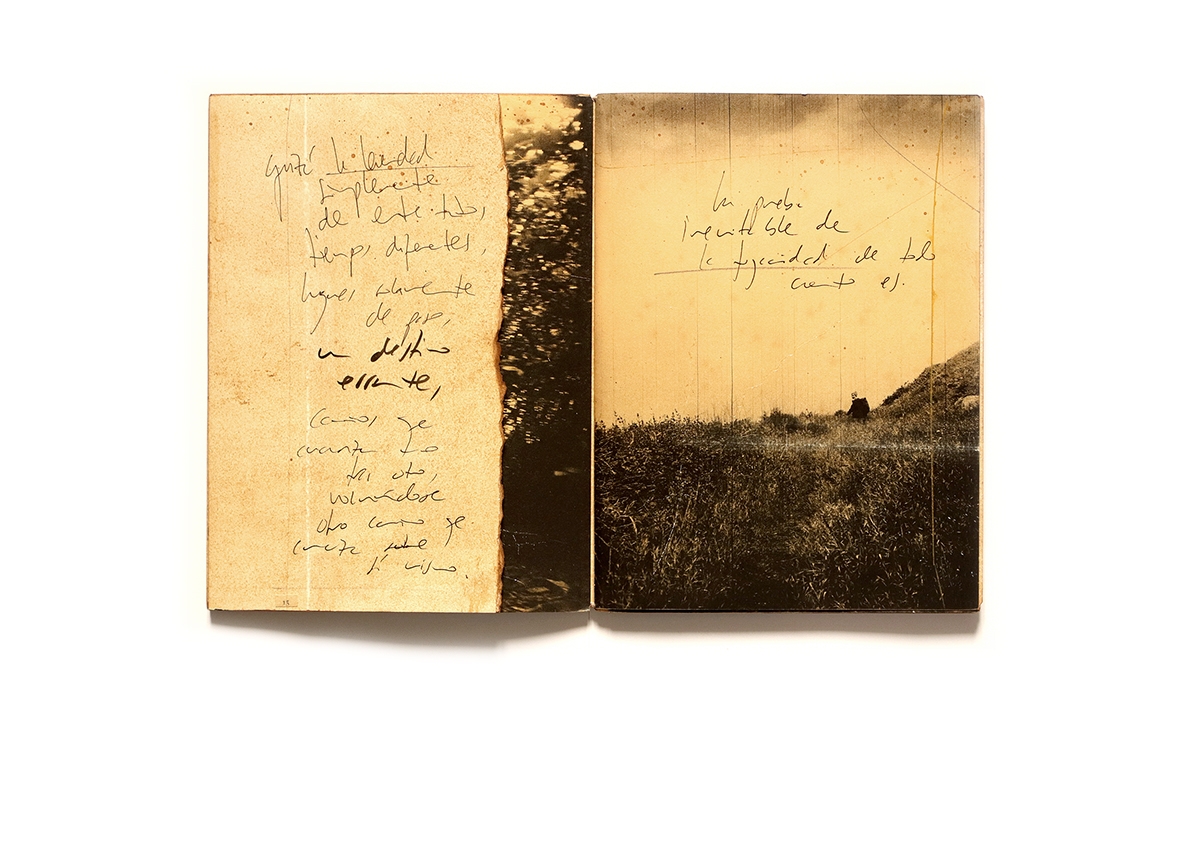 quizá la levedad
simplemente
de entre todos,
tiempos diferentes,
lugares solamente
de paso,
un destino
errante,
caminos que
tras otro,
volviéndose
otro camino que
comienza sobre
sí mismo.
La prueba
inevitable de
la fugacidad de todo
cuanto es.